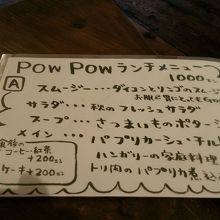 POW POW ランチメニュー
1000
A
スムージー……ダイコンとリンゴのスムージ
お肌に
サラダ……秋のフレッシュサラダ
スープ……さつまいものポタージ
メイン……パプリカーシュ・チルケ
ハンガリーの家庭料理
トリ肉のパプリカ煮込み
食後の
コーヒー・紅茶
+200
ケーキ+200